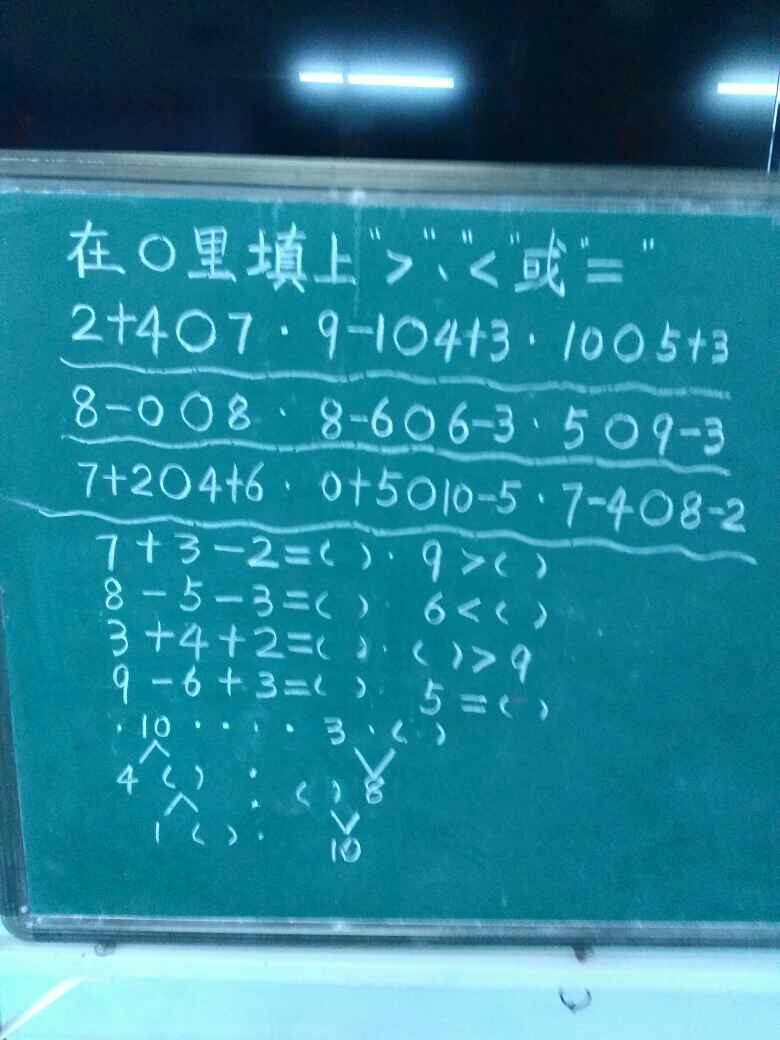 在○里填上">"、"<"或"="
2+4○7 · 9-1○4+3 · 10○5+3
8-0○8 · 8-6○6-3 · 5○9-3
7+2○4+6 · 0+5○10-5 · 7-4○8-2
7+3-2=( ) · 9>( )
8-5-3=( ) 6<( )
3+4+2=( ) · ( )>9
9-6+3=( ) · 5=( )
· 10 · · · · 3 · ( )
4 ( ) · ( ) 8
1 ( ) · 10